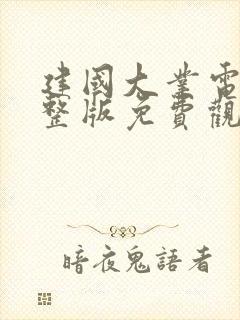 建國大業電
整版免費觀
暗夜鬼語者